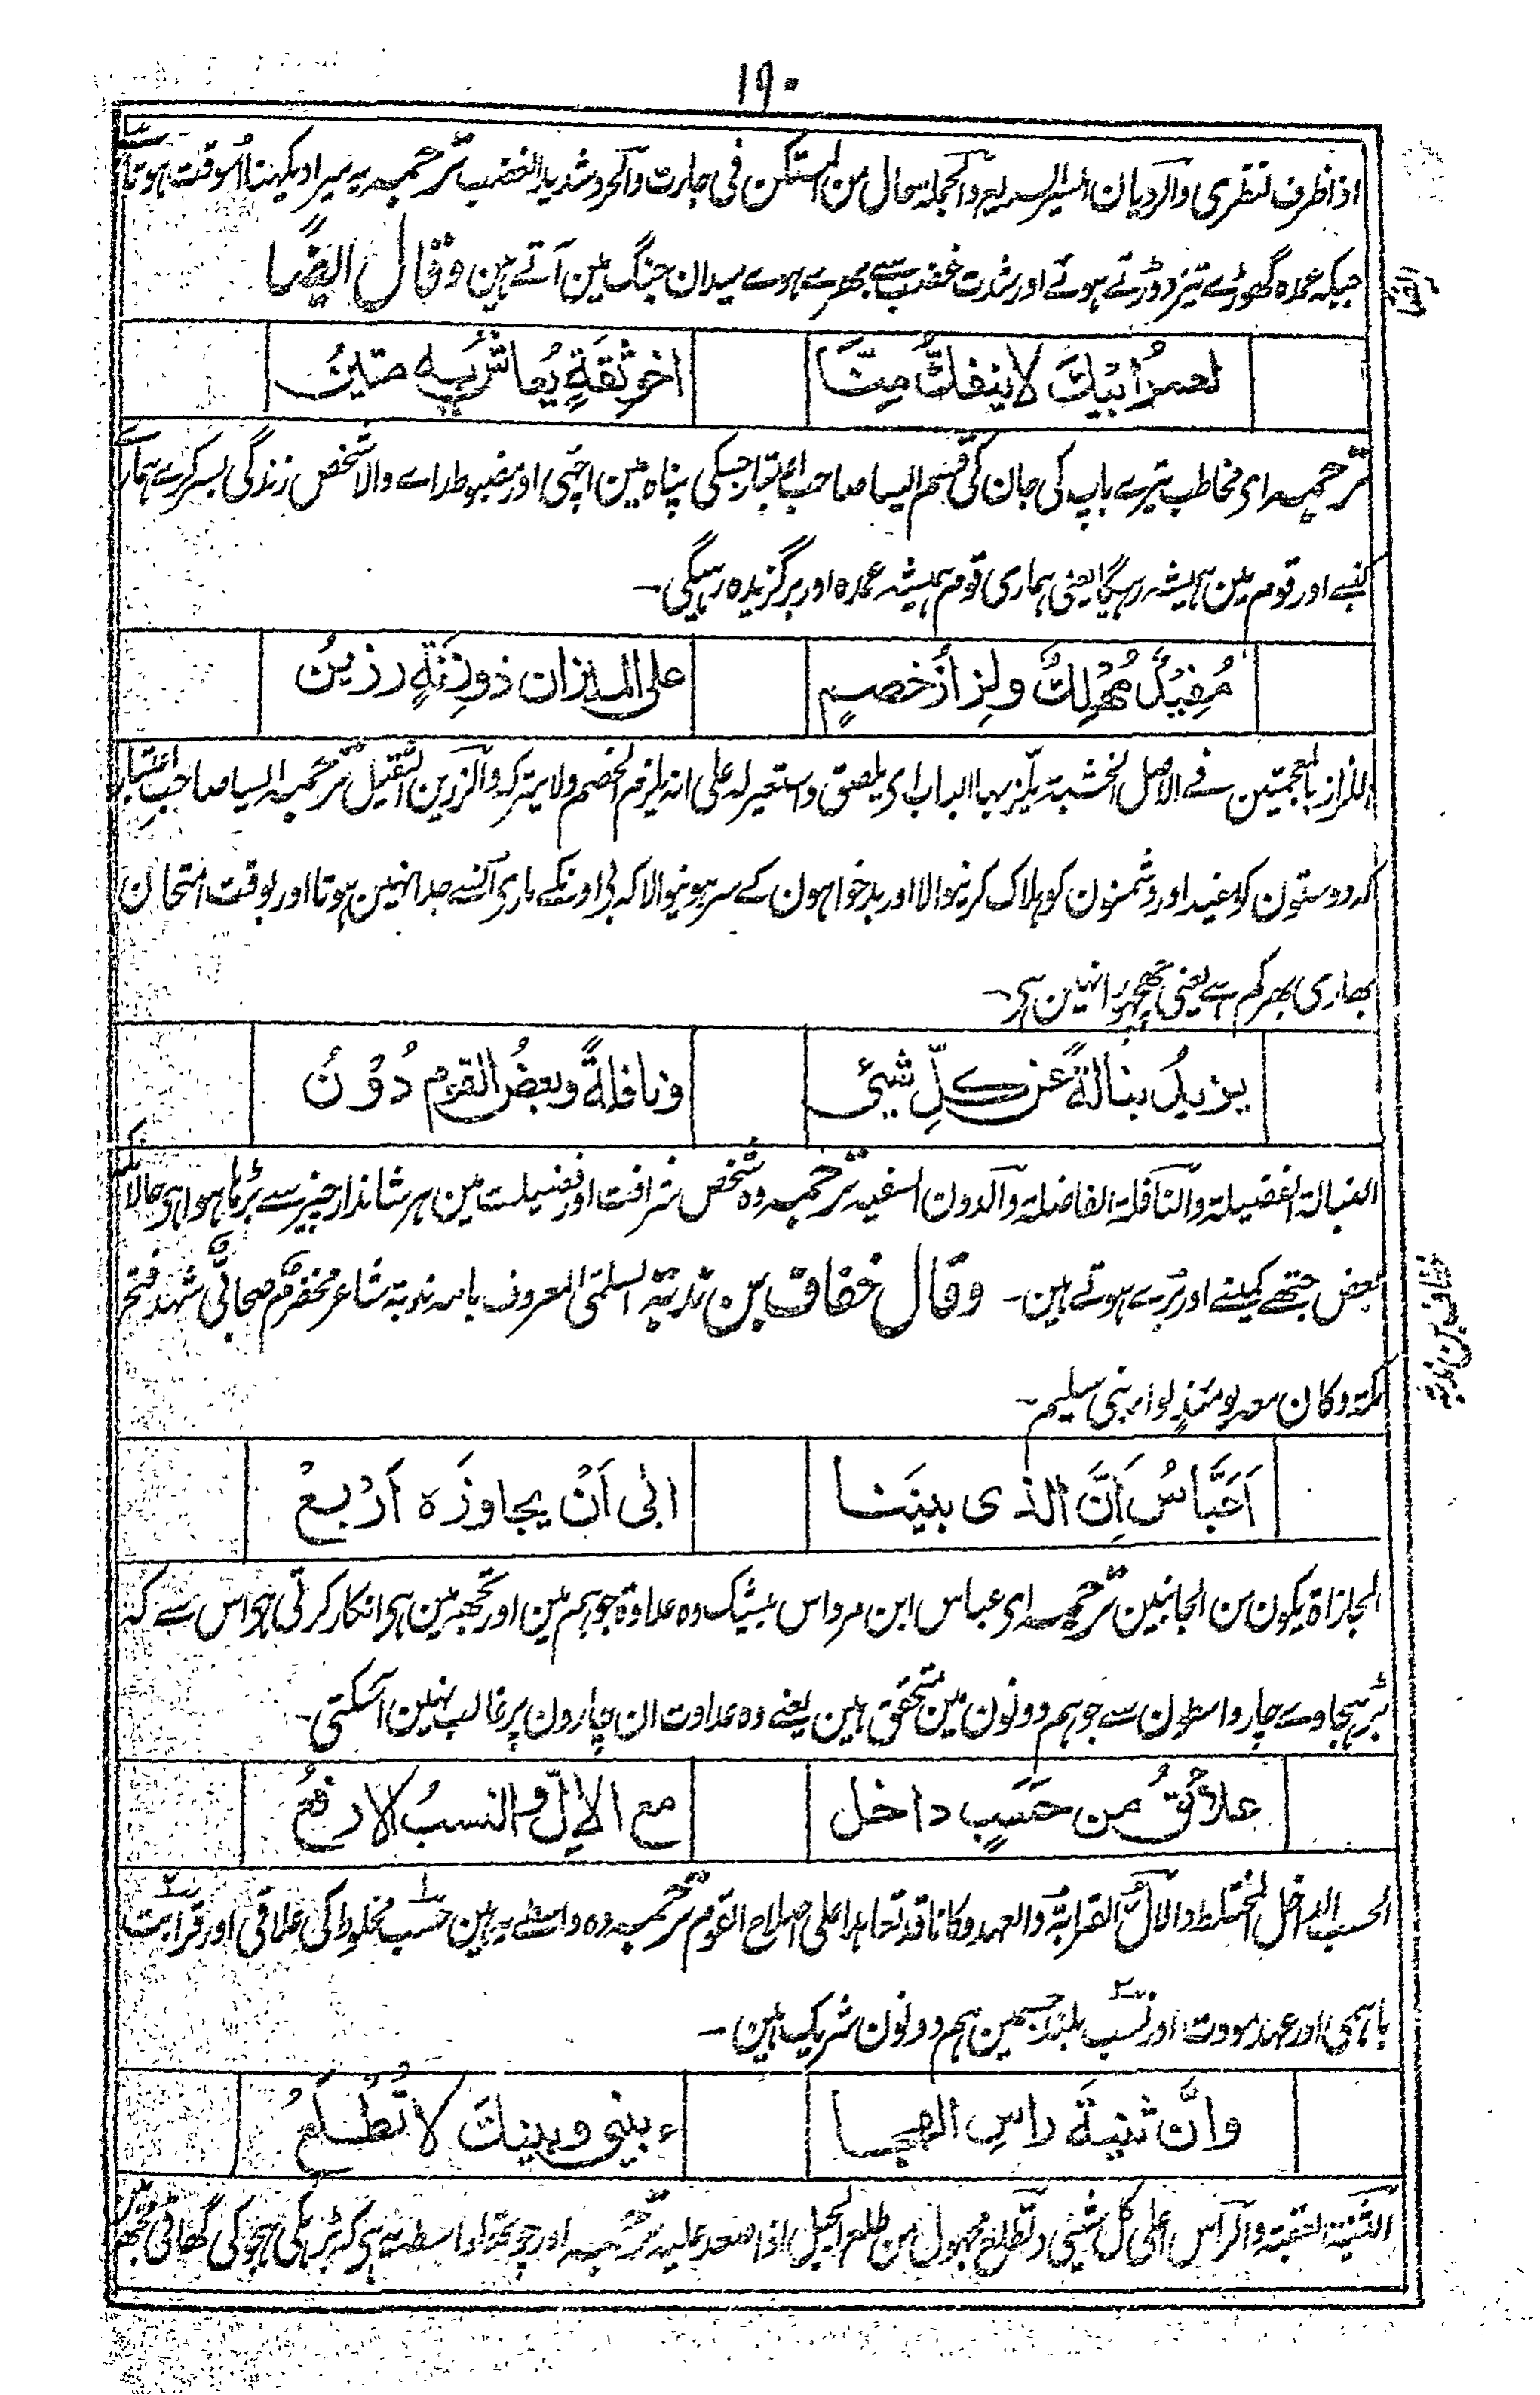 ۱۹۰
اذا ظرف لنظری والردیان السیر السریع والجملة حال من المستکن فی جارت والحرد شدید الغضب ترجمہ یہ میرا دیکہنا اسوقت ہوتا ہے
جبکہ عمدہ گھوڑے تیز دوڑتے ہوئے اور شدت غضب سے بھرے ہوے میدان جنگ مین آتے ہین وقال ایضًا
لعمرُ ابیْكَ لا ینفكُّ مِنّا
اخو ثِقَةٍ یُعاشُ بِہ متینُ
ترجمہ ای مخاطب تیرے باپ کی جان کی قسم ایسا صاحب اعتبار جسکی پناہ مین اچہی اور مضبوط راے والا شخص زندگی بسر کرے ہمارے
کنبے اور قوم مین ہمیشہ رہیگا یعنی ہماری قوم ہمیشہ عمدہ اور برگزیدہ رہیگی۔
مُفِیْدٌ مُهْلِكٌ ولِزازُ خصمٍ
علی المیزان ذو زِنَةٍ رزینُ
اللزاز بالمعجمتین فے الاصل الخشبة یلز بہا الباب ای یلصق واستعیر لہ علی انہ یلزم الخصم ولا یترکہ والرزین الثقیل ترجمہ ایسا صاحب اعتبار
کہ دوستون کو مفید اور دشمنون کو ہلاک کرنیوالا اور بدخواہون کے سر ہونیوالا کہ بی اونکے ماری اُنسے جدا نہین ہوتا اور بوقت امتحان
بھاری بھرکم ہے یعنی چھچہورا نہین ہی۔
یزیدُ نبالةً عن کلِّ شیئ
ونافلةً وبعضُ القوم دُوْنُ
النبالة الفضیلة والنافلة الفاضلة والدون السفیہ ترجمہ وہ شخص شرافت اور فضیلت مین ہر شاندار چیز سے بڑہا ہوا ہی حالانکہ
بعض جتھے کمینے اور بُرے ہوتے ہین۔ وقال خفاف بن ندبة السلمی المعروف بامہ ندبة شاعر مخضرم صحابیّ شہد فتح
مکة وکان معہ یومئذٍ لواء بنی سلیم۔
اَعَبَّاسُ اِنَّ الذی بینَنا
ابٰی اَنْ یجاوزَہ اَرْبعُ
المجازاة یکون من الجانبین ترجمہ ای عباس ابن مرداس بیشک وہ عداوة جو ہم مین اور تجھ مین ہی انکار کرتی ہی اس سے کہ
بڑہجاوے چار واسطون سے جو ہم دونون مین متحقق ہین یعنے وہ عداوت ان چارون پر غالب نہین آسکتی۔
علائقُ من حَسَبٍ داخل
مع الاِلِّ والنسبُ الارفعُ
الحسب الداخل المختلط والالّ القرابة والعہد وکانا قد تعاہدا علی اصلاح القوم ترجمہ وہ واسطے یہ ہین حسب مخلوط کی علاقی اور قرابت
باہمی اور عہد مودت اور نسب بلند جسمین ہم دونون شریک ہین۔
وانَّ ثنیةَ راسِ الهجا
ءِ بینی وبینكَ لا تُطْلَعُ
الثنیة العقبة والرأس اعلی کل شیئی وتطلع مجہول من طلع الجبل اذا صعد علیہ ترجمہ اور چوتھا واسطہ یہ ہی کہ بڑہکی ہجو کی گھاٹی مجھ مین
خفاف بن ندبة